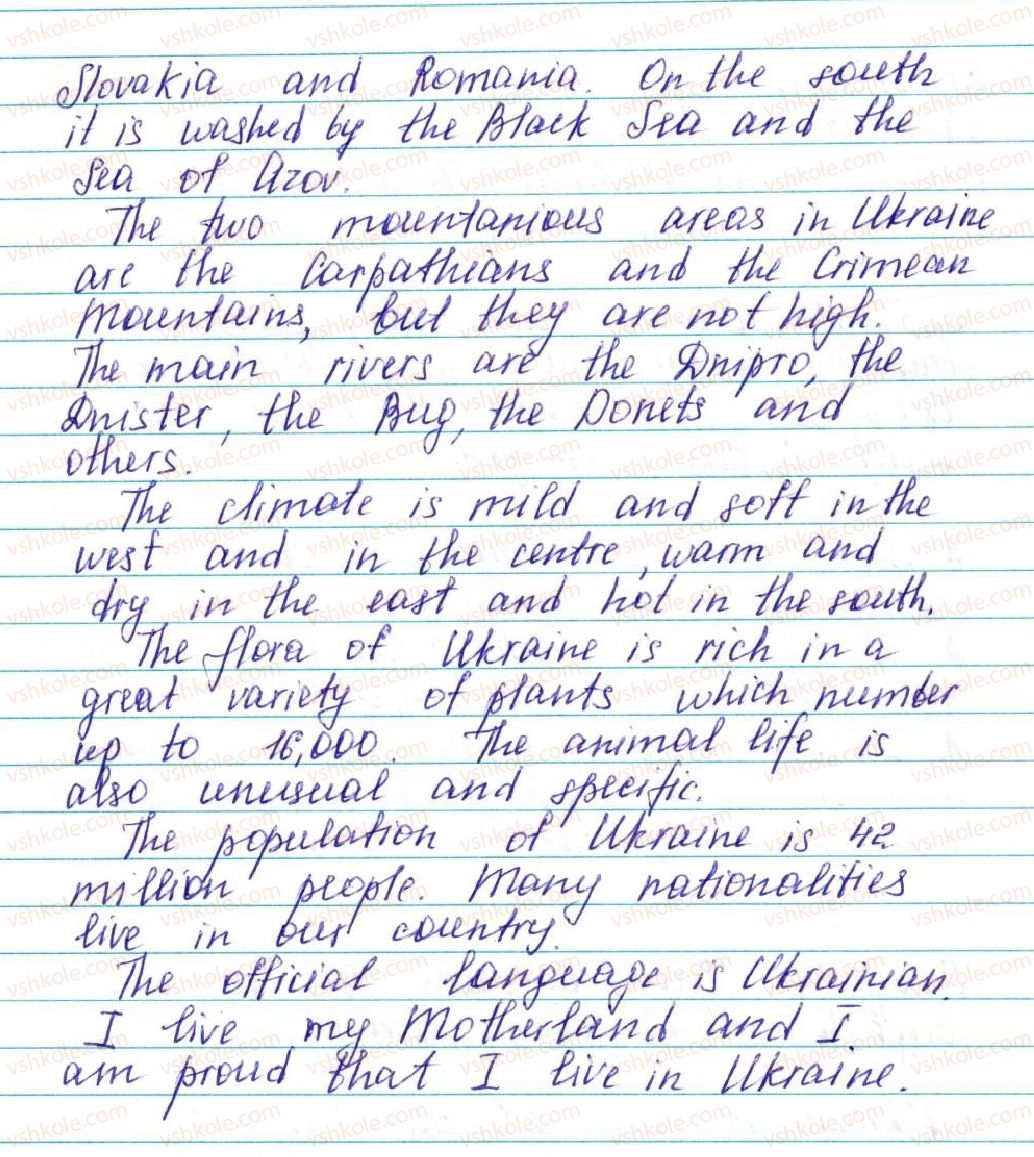 Slovakia and Romania. On the south
it is washed by the Black Sea and the
Sea of Azov.
The two mountanious areas in Ukraine
are the Carpathians and the Crimean
Mountains, but they are not high.
The main rivers are the Dnipro, the
Dnister, the Bug, the Donets and
others.
The climate is mild and soft in the
west and in the centre, warm and
dry in the east and hot in the south.
The flora of Ukraine is rich in a
great variety of plants which number
up to 16,000. The animal life is
also unusual and specific.
The population of Ukraine is 42
million people. Many nationalities
live in our country.
The official language is Ukrainian.
I live my Motherland and I
am proud that I live in Ukraine.